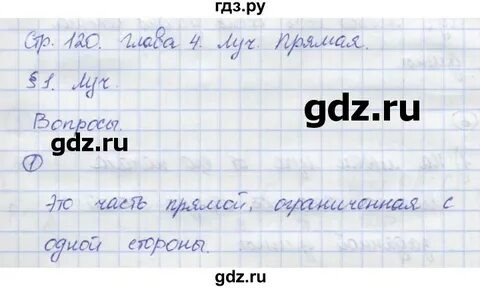 гдз.ру
Стр. 120. глава 4. Луч. Прямая.
§ 1. Луч.
gdz.ru
Вопросы.
gdz.ru
1
Это часть прямой, ограниченная с
одной стороны.
gdz.ru